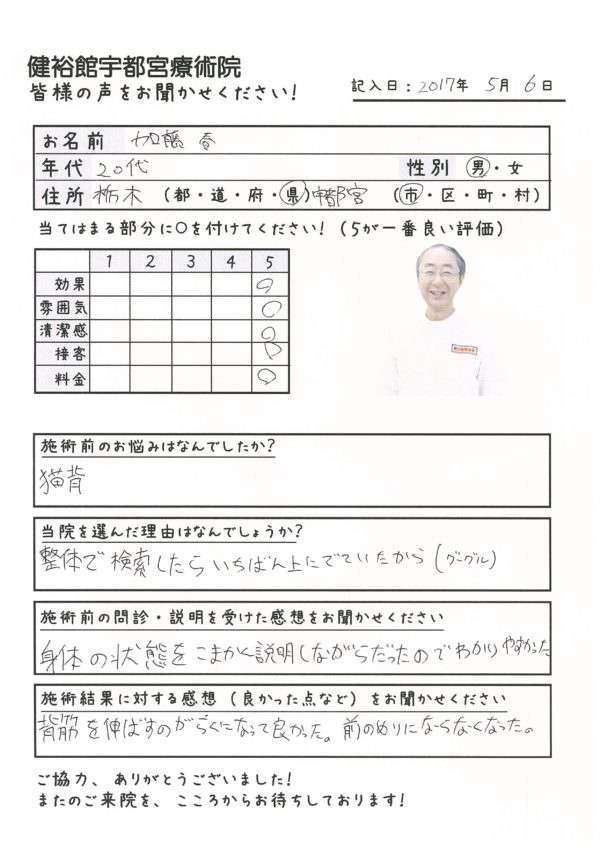 健裕館宇都宮療術院
皆様の声をお聞かせください!
記入日:2017年 5月 6日
お名前 加藤
年代 20代 性別 男・女
住所 栃木 (都・道・府・県) 宇都宮 (市・区・町・村)
当てはまる部分に○を付けてください! (5が一番良い評価)
1 2 3 4 5
効果 ○
雰囲気 ○
清潔感 ○
接客 ○
料金 ○
施術前のお悩みはなんでしたか?
猫背
当院を選んだ理由はなんでしょうか?
整体で検索したらいちばん上にでていたから(グーグル)
施術前の問診・説明を受けた感想をお聞かせください
身体の状態をこまかく説明しながらだったのでわかりやすかった
施術結果に対する感想 (良かった点など) をお聞かせください
背筋を伸ばすのがらくになって良かった。前のめりにならなくなった。
ご協力、ありがとうございました!
またのご来院を、こころからお待ちしております!